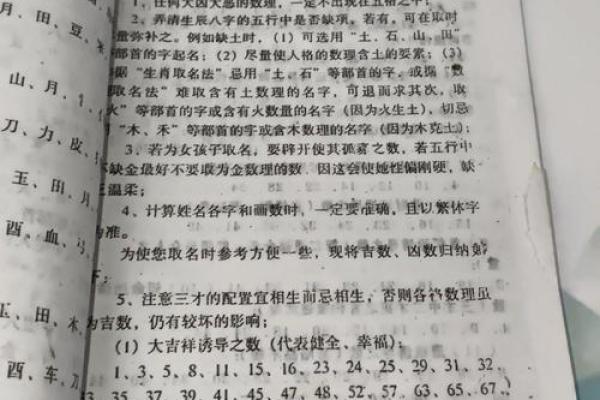 田、豆、
山、月、
刀、力、皮、
玉、田、月
酉、血、弓
玉、田、木
酉、车、刀
1、任何大凶大恶的数理，一定不出现在五格之中；
2、弄清生辰八字的五行中是否缺项，若有，可在取时
量弥补之。例如缺土时，(1) 可选用“土、石、山、田”
部首的字起名；(2) 尽量使人格的数理含土的要素；(3)
据“生肖取名法”忌用“土、石”等部首的字，或据“数
取名法”难取含有土数理的名字，可退而求其次，取
火”等部首的字或含有火数量的名字 (因为火生土)，切忌
“木、禾”等部首的字或含木数理的名字 (因为木克土)；
3、若为女孩子取名，要辟开使其孤寡之数，若五行中
缺金最好不要取为金数理的数 因这会使她性偏刚硬，缺
温柔；
4、计算姓名各字和画数时，一定要准确，且以繁体字
为准。
为使您取名时参考方便一些，现将吉数、凶数归纳如
下：
5、注意三才的配置宜相生而忌相生，否则各格数理虽
为吉数，仍有较坏的影响；
(1) 大吉祥诱导之数 (代表健全、幸福)；
1、3、5、8、11、15、16、23、24、25、29、31、32、
35、37、39、41、45、47、48、52、57、63、65、67、